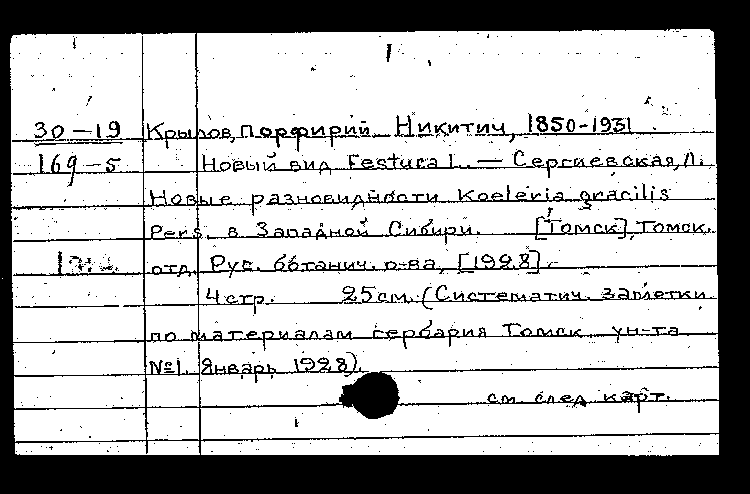 30-19 Крылов, Порфирий Никитич, 1850-1931
169-5 Новый вид Festuca L. — Сергиевская, Л.
Новые разновидности Koeleria gracilis
Pers. в Западной Сибири. [Томск], Томск.
отд. Рус. ботанич. о-ва, [1928].
4 стр. 25 см. (Систематич. заметки
по материалам гербария Томск. ун-та
№1. Январь 1928).
см. след. карт.